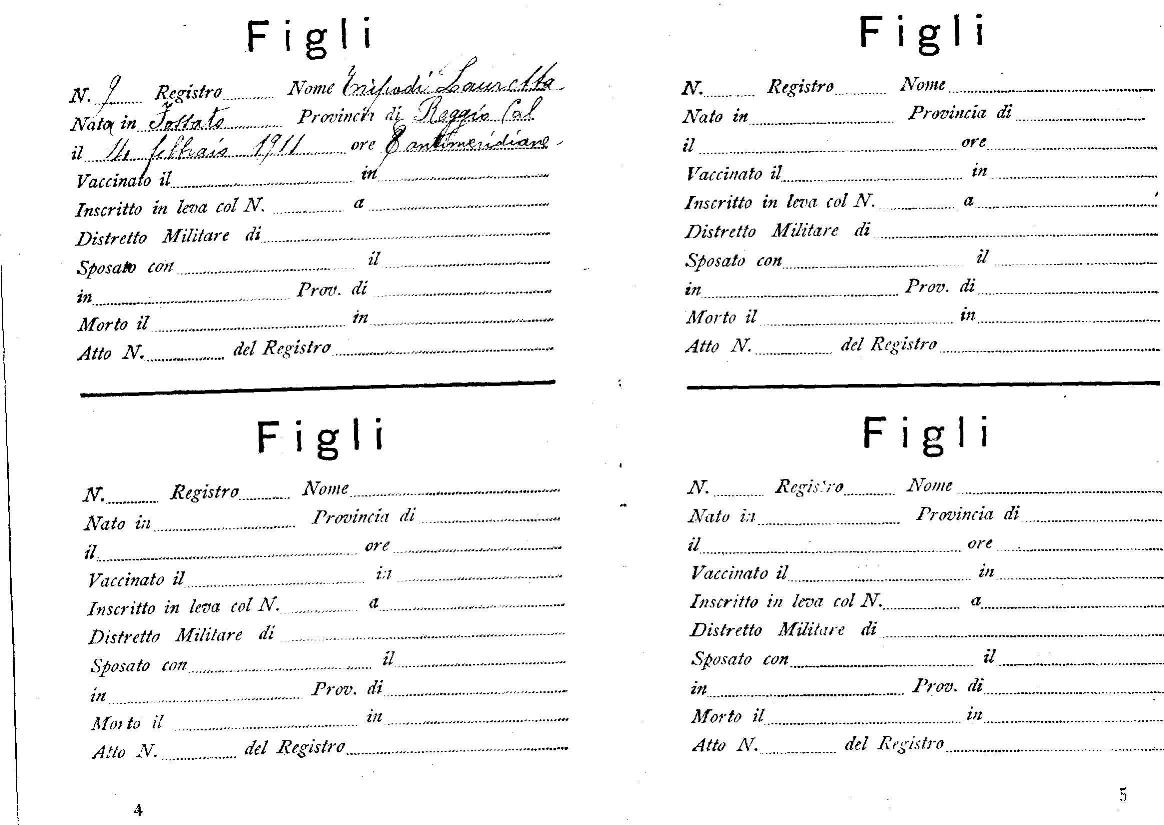 Figli
N. 9 Registro Nome Tripodi Lauretta
Nata in Fossato Provincia di Reggio Cal
il 14 febbraio 1911 ore 8 antimeridiane
Vaccinato il in
Inscritto in leva col N. a
Distretto Militare di
Sposato con il
in Prov. di
Morto il in
Atto N. del Registro
Figli
N. Registro Nome
Nato in Provincia di
il ore
Vaccinato il in
Inscritto in leva col N. a
Distretto Militare di
Sposato con il
in Prov. di
Morto il in
Atto N. del Registro
4
Figli
N. Registro Nome
Nato in Provincia di
il ore
Vaccinato il in
Inscritto in leva col N. a
Distretto Militare di
Sposato con il
in Prov. di
Morto il in
Atto N. del Registro
Figli
N. Registro Nome
Nato in Provincia di
il ore
Vaccinato il in
Inscritto in leva col N. a
Distretto Militare di
Sposato con il
in Prov. di
Morto il in
Atto N. del Registro
5